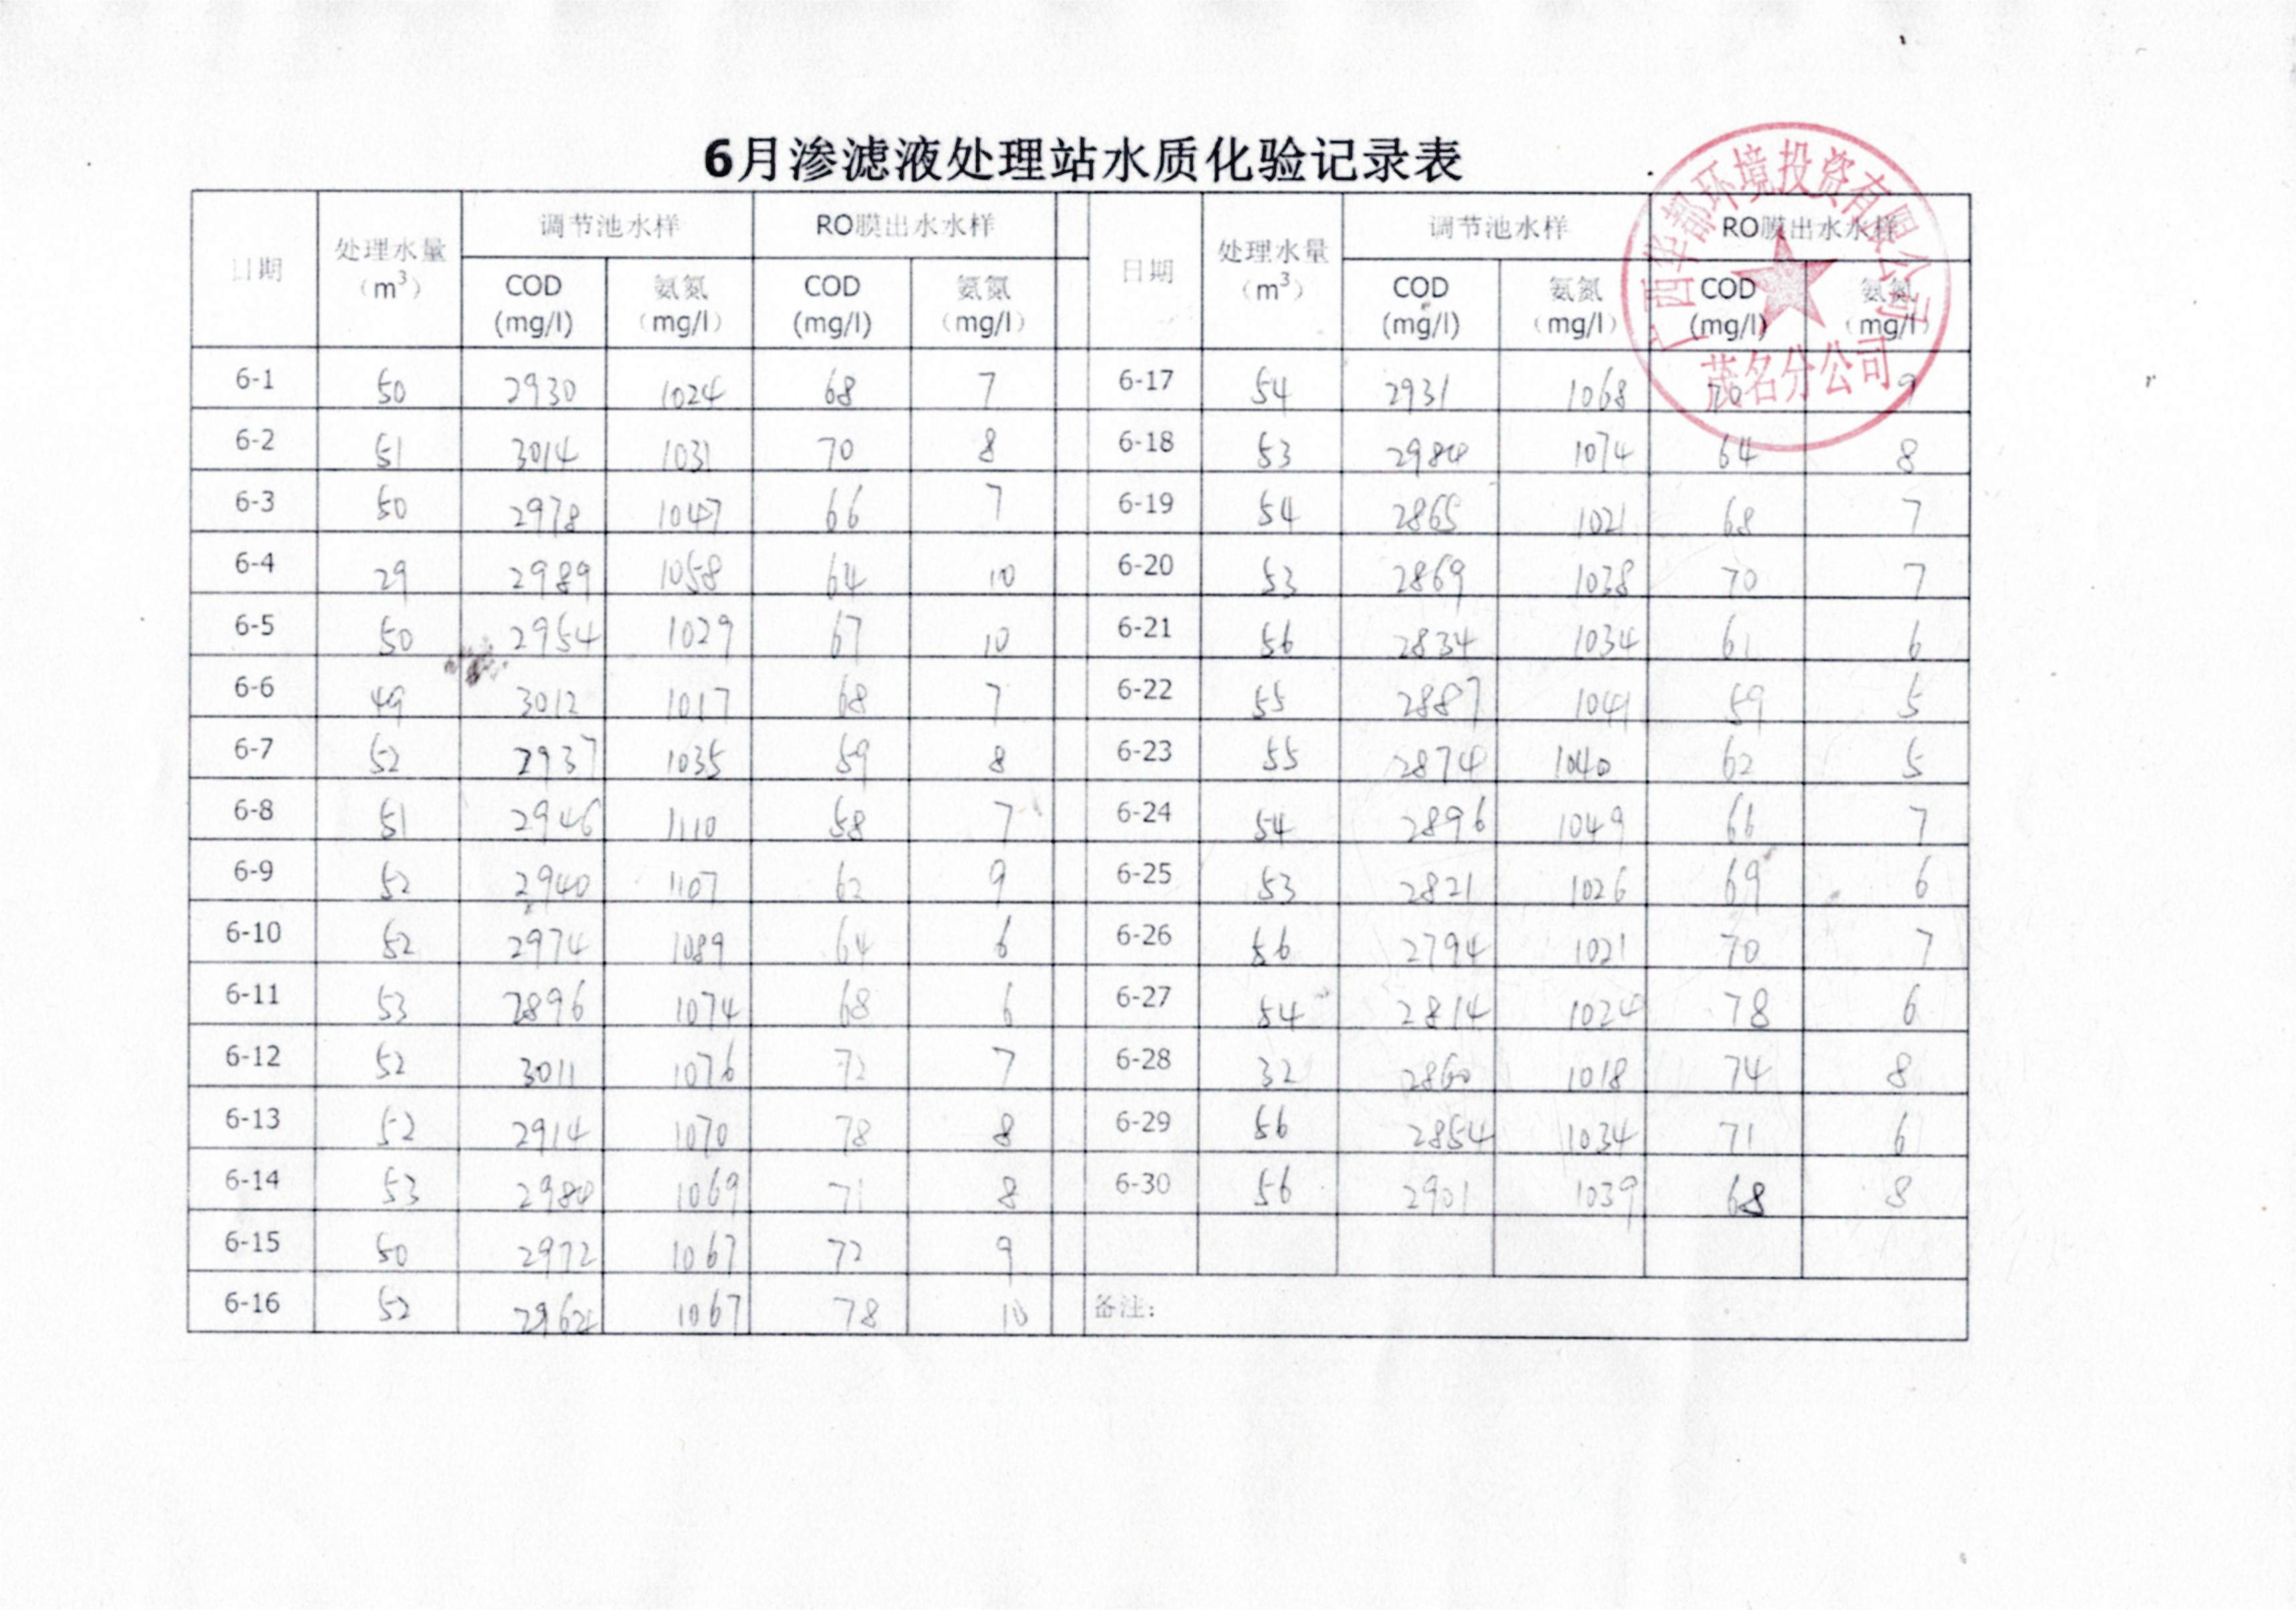 6月渗滤液处理站水质化验记录表
日期 处理水量（m³） 调节池水样 RO膜出水水样 日期 处理水量（m³） 调节池水样 RO膜出水水样
COD (mg/l) 氨氮（mg/l） COD (mg/l) 氨氮（mg/l） COD (mg/l) 氨氮（mg/l） COD (mg/l) 氨氮（mg/l）
6-1 50 2930 1024 68 7 6-17 54 2931 1068 70 9
6-2 51 3014 1031 70 8 6-18 53 2984 1074 64 8
6-3 50 2978 1047 66 7 6-19 54 2865 1021 68 7
6-4 29 2989 1058 64 10 6-20 53 2869 1038 70 7
6-5 50 2954 1029 67 10 6-21 56 2834 1034 61 6
6-6 49 3012 1017 68 7 6-22 55 2887 1041 59 5
6-7 52 2937 1035 59 8 6-23 55 2874 1040 62 5
6-8 51 2946 1110 58 7 6-24 54 2896 1049 66 7
6-9 52 2940 1107 62 9 6-25 53 2821 1026 69 6
6-10 52 2974 1089 64 6 6-26 56 2794 1021 70 7
6-11 53 2896 1074 68 6 6-27 54 2814 1024 78 6
6-12 52 3011 1076 72 7 6-28 32 2860 1018 74 8
6-13 52 2914 1070 78 8 6-29 56 2854 1034 71 6
6-14 53 2984 1069 71 8 6-30 56 2901 1039 68 8
6-15 50 2972 1067 72 9
6-16 52 1067 78 10 备注：
广西华都环境投资有限公司
茂名分公司